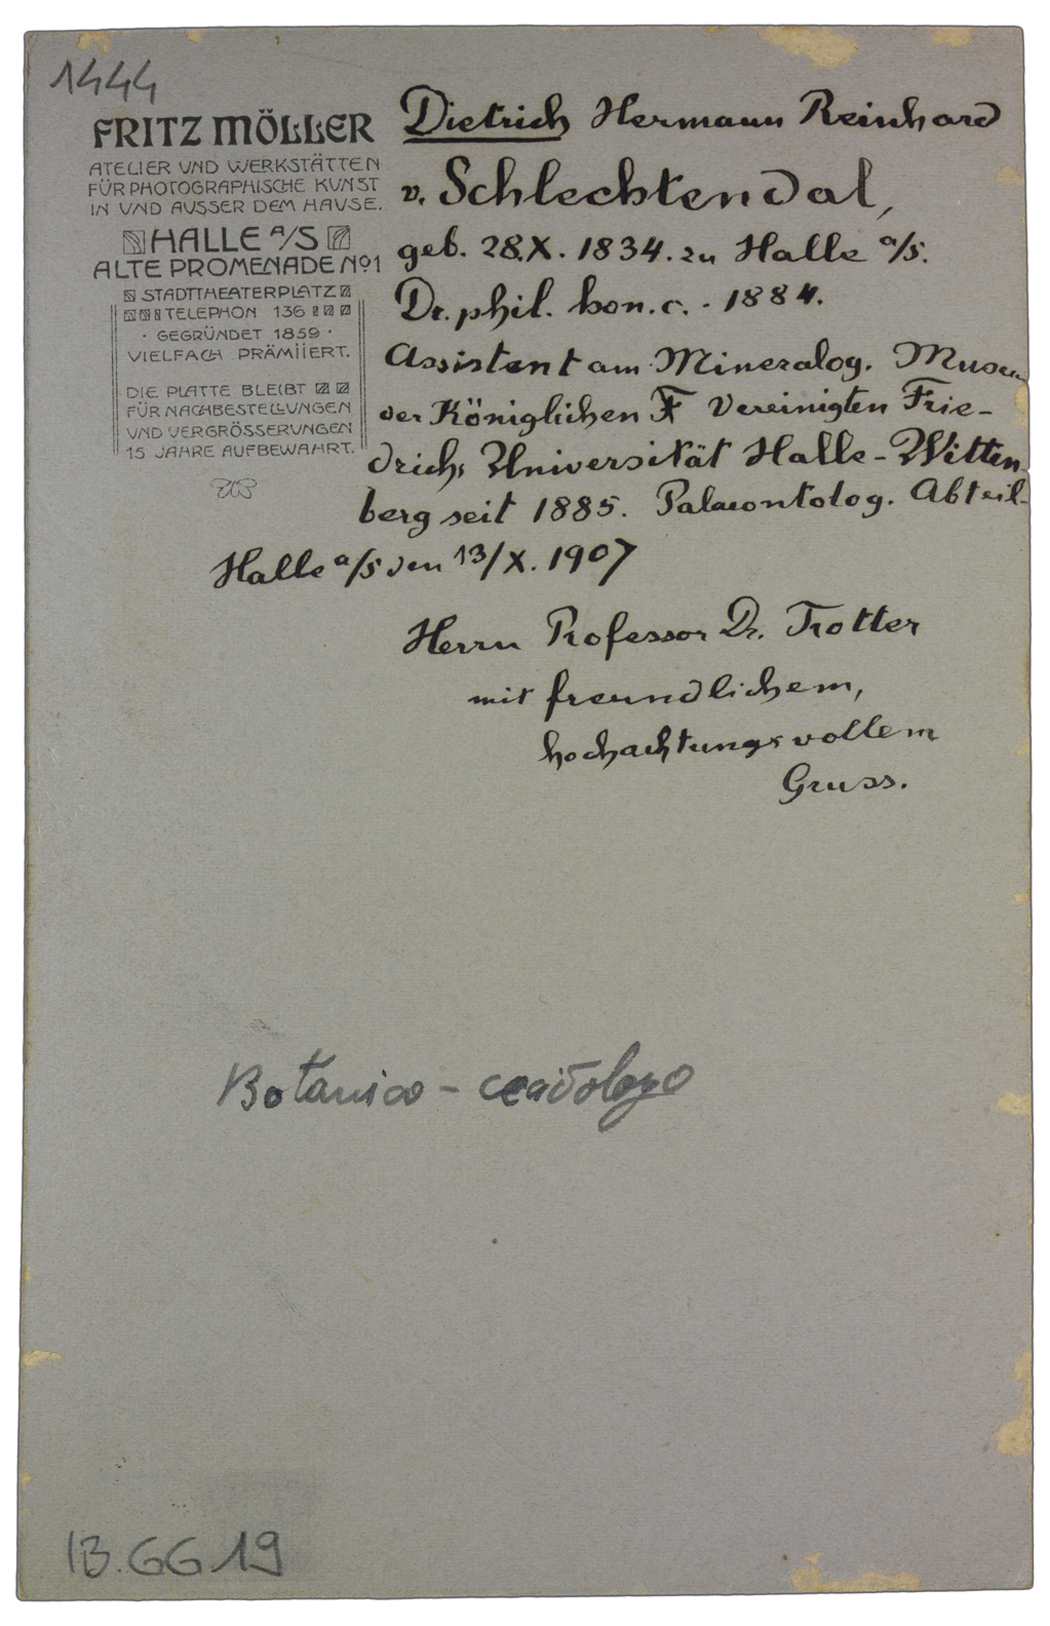 1444
FRITZ MÖLLER
ATELIER UND WERKSTÄTTEN
FÜR PHOTOGRAPHISCHE KUNST
IN UND AUSSER DEM HAUSE.
HALLE A/S
ALTE PROMENADE No1
STADTTHEATERPLATZ
TELEPHON 136
· GEGRÜNDET 1859 ·
VIELFACH PRÄMIIERT.
DIE PLATTE BLEIBT
FÜR NACHBESTELLUNGEN
UND VERGRÖSSERUNGEN
15 JAHRE AUFBEWAHRT.
Dietrich Hermann Reinhard
v. Schlechtendal,
geb. 28.X. 1834. zu Halle a/S.
Dr. phil. hon. c. - 1884.
Assistent am Mineralog. Museum
der Königlichen Vereinigten Frie-
drichs Universität Halle-Witten-
berg seit 1885. Palaeontolog. Abteil-
Halle a/S den 13/X. 1907
Herrn Professor Dr. Trotter
mit freundlichem,
hochachtungsvollem
Gruss.
Botanico - cecidologo
B.GG 19